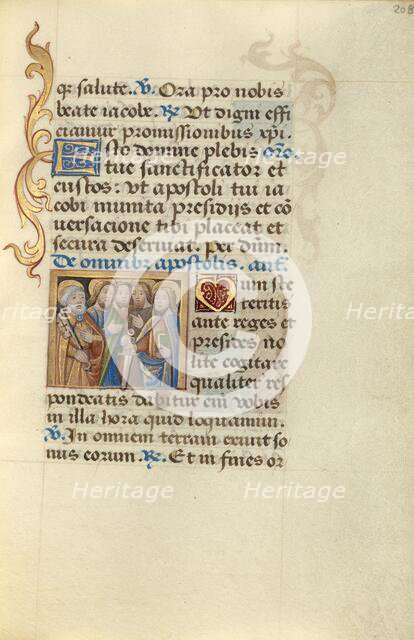 208
q̄ salute. V. Ora pro nobis
beate iacobe. R. Ut digni effi
ciamur promissionibus xp̄i.
Esto domine plebis orō.
tue sanctificator et
custos: ut apostoli tui ia
cobi munita presidijs et cō
versacione tibi placeat et
secura deserviat. per dūm.
De omnibȝ apostolis. ant.
Cum ste
teritis
ante reges et
presides no
lite cogitare
qualiter res
pondeatis dabitur eīi vobis
in illa hora quid loquamini.
V. In omnem terram exivit so
nus eorum. R. Et in fines or
Heritage
Heritage
Heritage
Heritage
Heritage
Heritage